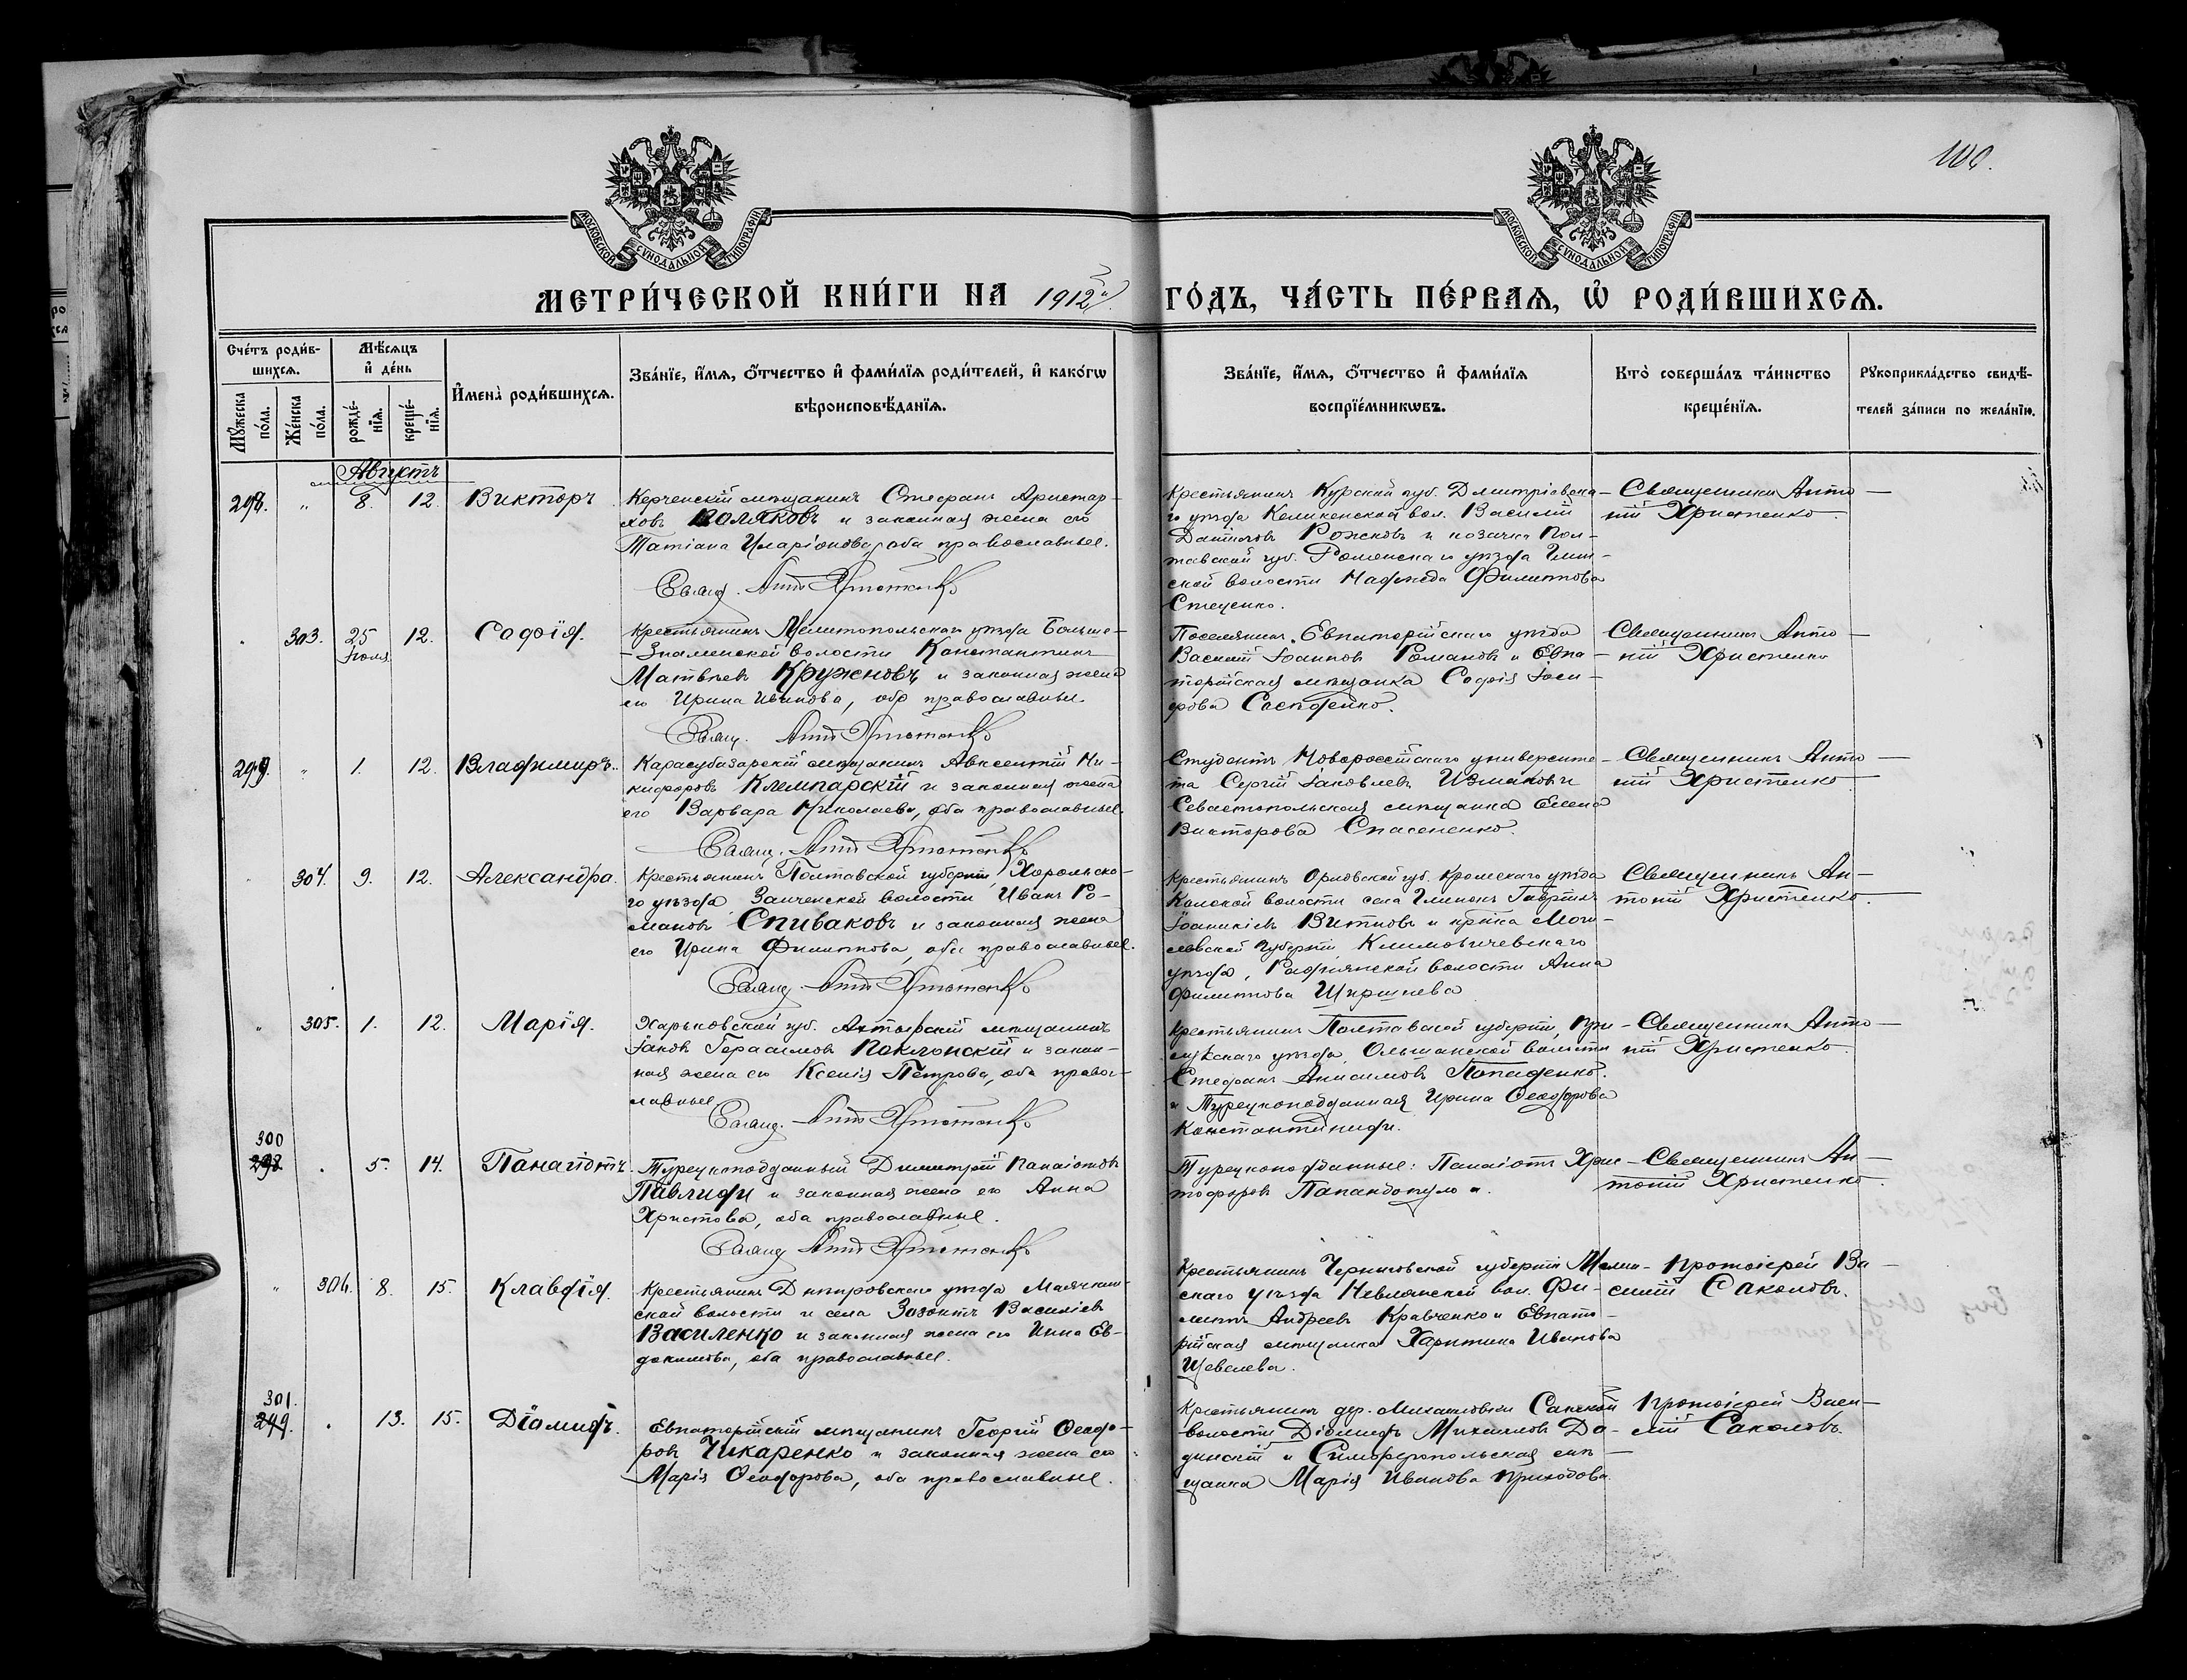 100.
МОСКОВСКОЙ СУНОДАЛЬНОЙ ТИПОГРАФІИ
МОСКОВСКОЙ СУНОДАЛЬНОЙ ТИПОГРАФІИ
МЕТРИ́ЧЕСКОЙ КНИ́ГИ НА 1912й ГО́ДЪ, ЧА́СТЬ ПЕ́РВАЯ, Ѡ҆ РОДИ́ВШИХСЯ.
Сче́тъ роди́в-
шихся.
Мѣ́сяцъ
и҆ де́нь
Мꙋ́жеска по́ла.
Же́нска по́ла.
рожде́-
нїя.
креще́-
нїя.
И҆мена̀ роди́вшихся.
Зва́нїе, и҆́мя, о҆́тчество и҆ фами́лїя роди́телей, и҆ како́гѡ
вѣроисповѣ́данїя.
Зва́нїе, и҆́мя, о҆́тчество и҆ фами́лїя
воспрїе́мникѡвъ.
Кто̀ соверша́лъ та́инство
креще́нїя.
Рꙋкоприкла́дство свидѣ́-
телей за́писи по жела́нїю.
Августъ
298. " 8. 12. Викторъ
Керченскій мѣщанинъ Стефанъ Аристар-
ховъ Поляковъ и законная жена его
Татіана Иларіонова, оба православные.
Свящ. Антоній Христенко
Крестьянинъ Курской губ. Дмитріевска-
го уѣзда вол. Василій
Даниловъ Рожковъ и козачка Пол-
тавской губ. Роменскаго уѣзда
ской волости Надежда Филиппова
Стеценко.
Священникъ Анто-
ній Христенко.
303. 25 Іюля 12. Софія.
Крестьянинъ Мелитопольскаго уѣзда Больше-
-Знаменской волости Константинъ
Матвѣевъ Кружновъ и законная жена
его Ирина Иванова, оба православные.
Свящ. Антоній Христенко
Поселянинъ Евпаторійскаго уѣзда
Василій Іоанновъ Романовъ и Евпа-
торійская мѣщанка Софія Іоси-
фова
Священникъ Анто-
ній Христенко
299. " 1. 12. Владимиръ.
Карасубазарскій мѣщанинъ Авксентій Ни-
кифоровъ Клемпарскій и законная жена
его Варвара Николаева, оба православные.
Свящ. Антоній Христенко
Студентъ Новороссійскаго университе-
та Сергій Іаковлевъ и
Севастопольская мѣщанка Елена
Викторова Спасененко.
Священникъ Анто-
ній Христенко
304. 9. 12. Александра.
Крестьянинъ Полтавской губерніи, Хорольска-
го уѣзда, Заиченской волости Иванъ Ро-
мановъ Спиваковъ и законная жена
его Ирина Филиппова, оба православные.
Свящ. Антоній Христенко
Крестьянинъ Орловской губ. Кромскаго уѣзда
волости села Гавріилъ
Іоанникіевъ и Моги-
левской губерніи, Климовичевскаго
уѣзда, волости Анна
Филиппова Ширшнева
Священникъ Ан-
тоній Христенко.
" 305. 1. 12. Марія.
Харьковской губ. Ахтырскій мѣщанинъ
Іаковъ Герасимовъ Поклонскій и закон-
ная жена его Ксенія Петрова, оба право-
славные.
Свящ. Антоній Христенко
Крестьянинъ Полтавской губерніи, При-
лукскаго уѣзда, Ольшанской волости
Стефанъ Анисимовъ Попаденко.
и Турецкоподданная Ирина Ѳеодорова
Константиниди.
Священникъ Анто-
ній Христенко.
300
298 . 5. 14. Панагіотъ.
Турецкоподданный Димитрій Панаіотовъ
Павлиди и законная жена его Анна
Христова, оба православные.
Свящ. Антоній Христенко
Турецкоподданные: Панаіотъ Хри-
тофоровъ Папандопуло и.
Священникъ Ан-
тоній Христенко.
" 306. 8. 15. Клавдія.
Крестьянинъ Днѣпровскаго уѣзда Маячкин-
ской волости и села Зосимъ Василіевъ
Василенко и законная жена его Анна Ев-
докимова, оба православные.
Крестьянинъ Черниговской губерніи Мглин-
скаго уѣзда Нивлянской вол. Фи-
липпъ Андреевъ Кравченко и Евпато-
рійская мѣщанка Харитина Иванова
Щевелева.
Протоіерей Ва-
силій Соколовъ.
301.
299. . 13. 15. Діомидъ.
Евпаторійскій мѣщанинъ Георгій Ѳеодо-
ровъ Чикаренко и законная жена его
Марія Ѳеодорова, оба православные.
Крестьянинъ дер. Михайловки Сакской
волости Діомидъ Михаиловъ До-
динскій и Симферопольская мѣ-
щанка Марія Иванова Приходова.
Протоіерей Васи-
лій Соколовъ.